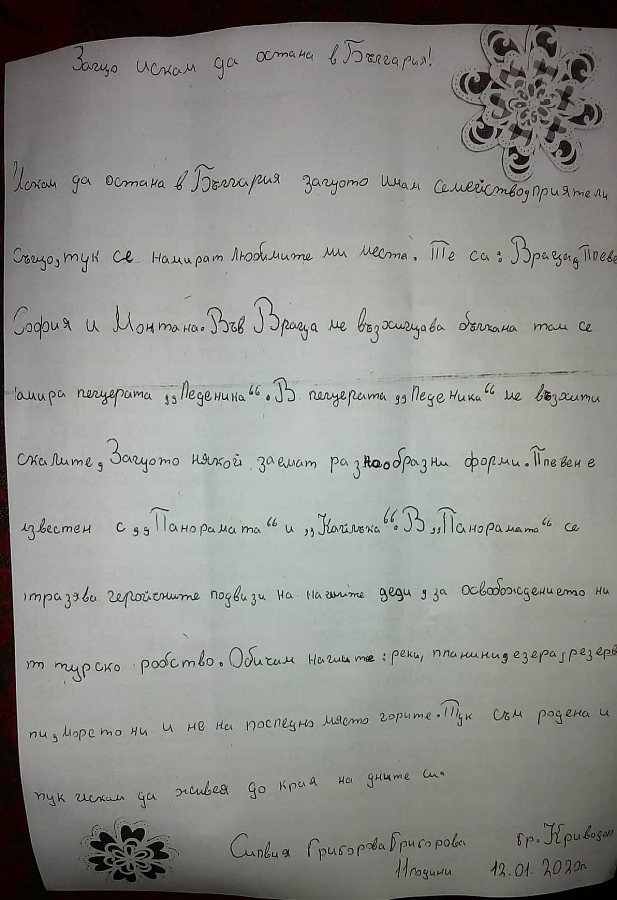 Защо искам да остана в България!
Искам да остана в България защото имам семейство, приятели
Също, тук се намират любимите ми места. Те са: Враца, Плеве
София и Монтана. Във Враца ме възхищава бъкана там се
амира пещерата ,,Леденика“. В пещерата ,,Леденика“ ме възхити
скалите, Защото някой заемат разнообразни форми. Плевен е
известен с ,,Панорамата“ и ,,Кайлъка“. В ,,Панорамата“ се
тразява геройските подвизи на нашите деди, за освобождението ни
т турско робство. Обичам нашите: реки, планини, езера, резерв
ли, морето ни и не на последно място горите. Тук съм родена и
тук искам да живея до края на дните си.
Силвия Григорова Григорова гр. Криводол
11 години 12.01. 2020г.